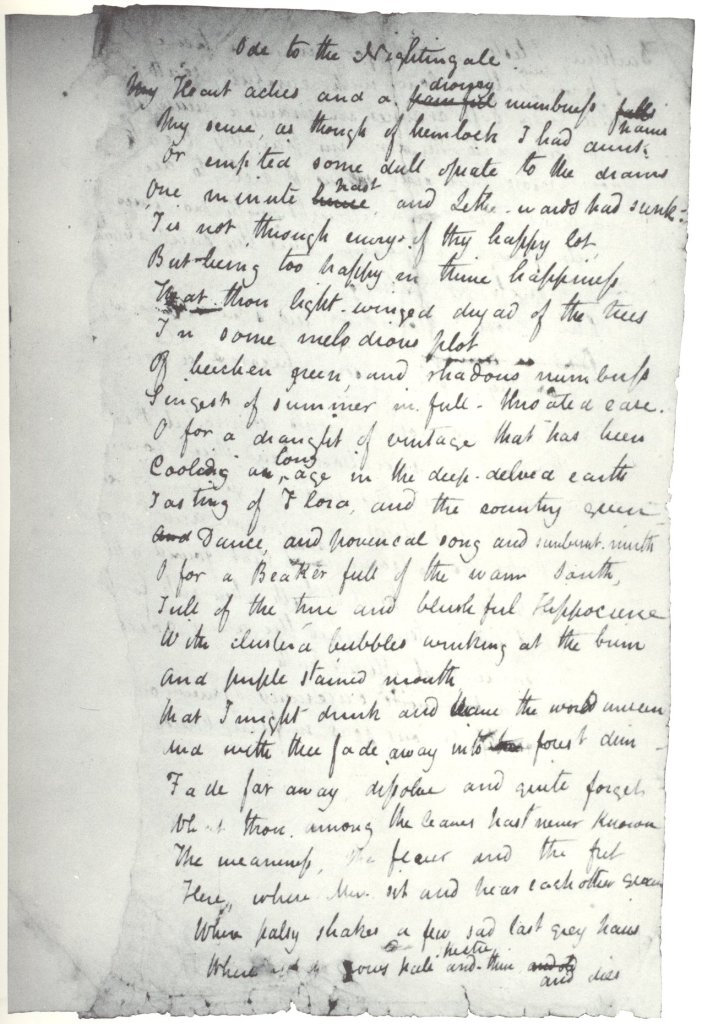 Ode to the Nightingale
My Heart aches and a painful drowsy numbness falls
My sense, as though of hemlock I had drunk pains
Or emptied some dull opiate to the drains
One minute hence past, and Lethe-wards had sunk:
'Tis not through envy of thy happy lot,
But being too happy in thine happiness
That thou light-winged dryad of the trees
In some melodious plot
Of beechen green, and shadows numberless
Singest of summer in full-throated ease.
O for a draught of vintage that has been
Cooling an long age in the deep-delved earth
Tasting of Flora, and the country green
And Dance, and provencal song and sunburnt mirth
O for a Beaker full of the warm South,
Full of the true and blushful Hippocrene
With cluster'd bubbles winking at the brim
And purple stained mouth
That I might drink and leave the world unseen
And with thee fade away into the forest dim -
Fade far away dissolve and quite forget
What thou among the leaves hast never known
The weariness, the fever and the fret
Here, where Men sit and hear each other groan
Where palsy shakes a few sad last grey hairs
Where grows pale and spectre thin and old and dies